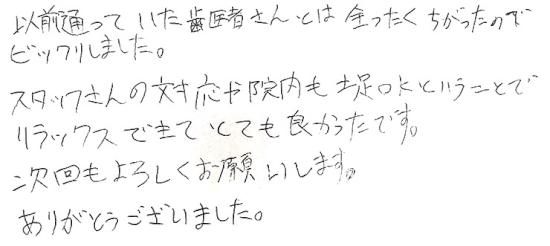 以前通っていた歯医者さんとは全ったくちがったので
ビックリしました。
スタッフさんの対応や院内も ということで
リラックスできてとても良かったです。
次回もよろしくお願いします。
ありがとうございました。